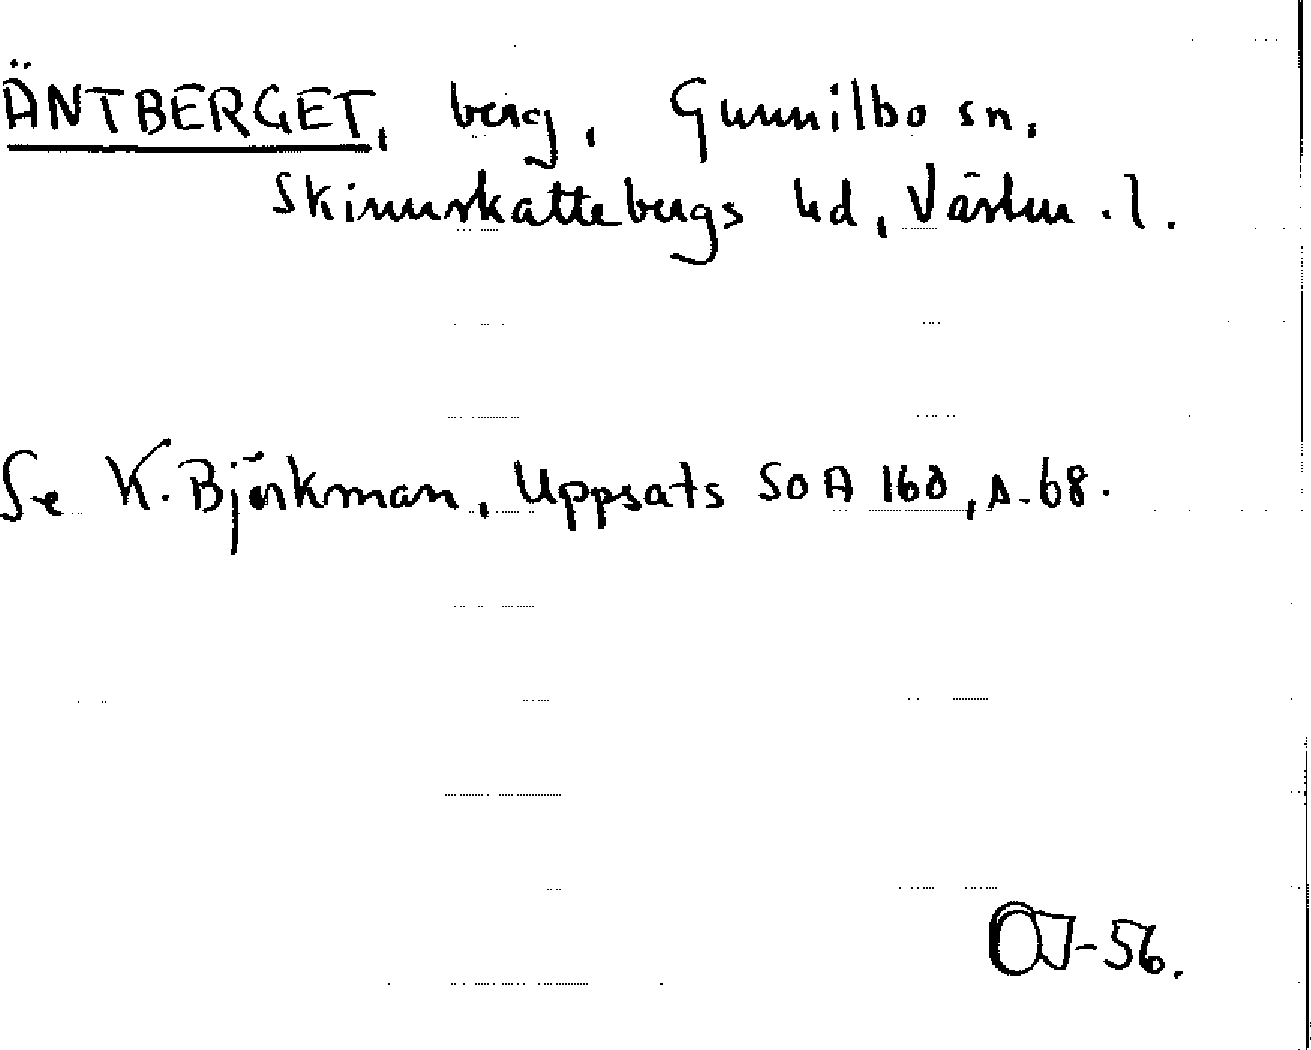 ÄNTBERGET, berg, Gunnilbo sn.
Skinnskattebergs hd, Västm. l.
Se K. Björkman, Uppsats SOA 160, s. 68.
OJ-56.